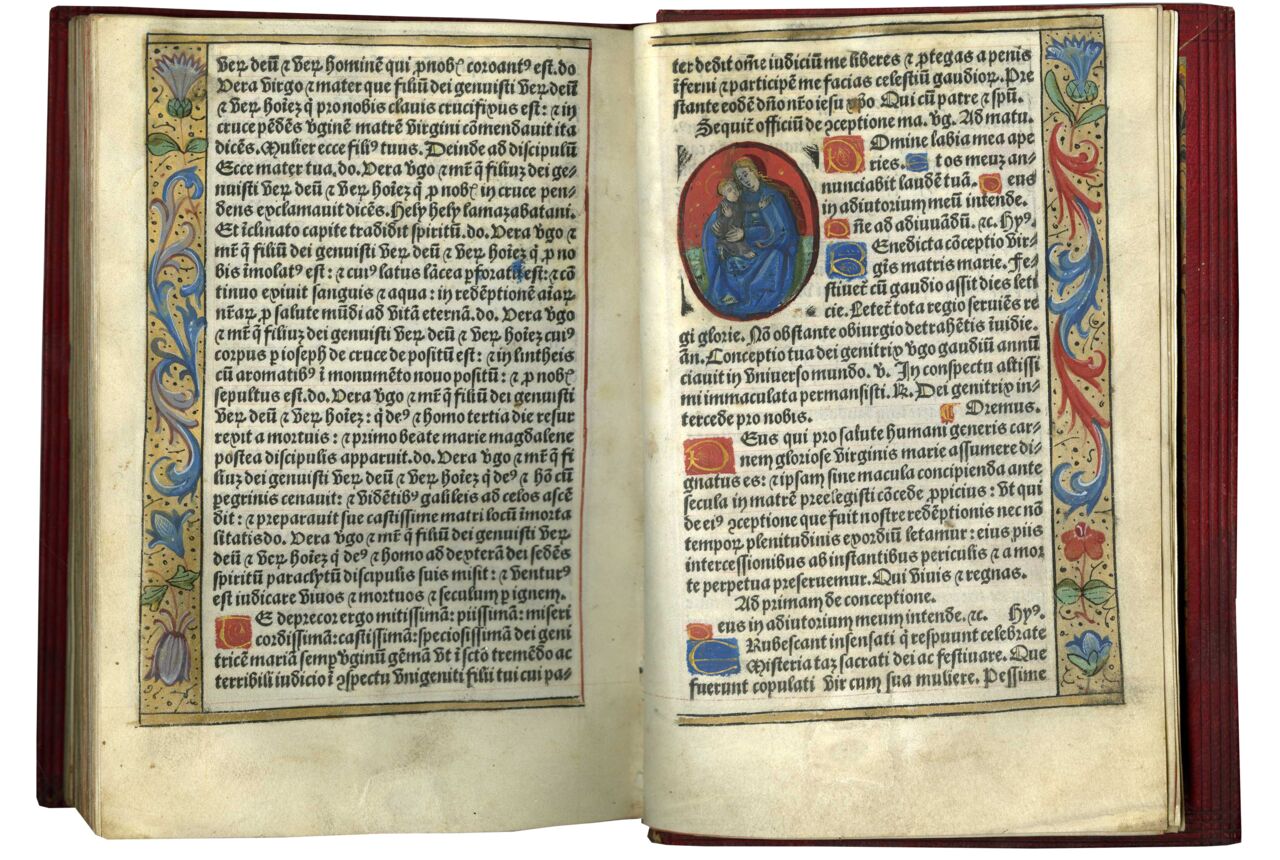 ver̨ deū ⁊ ver̨ hominē qui ꝓ nobꝭ coroantꝰ est. do
Vera virgo ⁊ mater que filiū dei genuisti ver̨ deū
⁊ ver̨ hoīez q̇ pro nobis clavis crucifixus est: ⁊ in
cruce pēdēs vginē matrē virgini cōmendauit ita
dicēs. Mulier ecce filiꝰ tuus. Deinde ad discipulū
Ecce mater tua. do. Vera vgo ⁊ mr̄ q̄ filiuz dei ge-
nuisti ver̨ deū ⁊ ver̨ hoīez q̇ ꝓ nobꝭ in cruce pen-
dens exclamauit dicēs. Hely hely lamazabatani.
Et īclinato capite tradidit spiritū. do. Vera vgo ⁊
mr̄ q̄ filiū dei genuisti ver̨ deū ⁊ ver̨ hoīez q̇ ꝓ no
bis īmolatꝰ est: ⁊ cuiꝰ latus lācea ꝑforatū est: ⁊ cō
tinuo exiuit sanguis ⁊ aqua: in redēptionē aīaꝝ
nr̄aꝝ ꝓ salute mūdi ad vitā eternā. do. Vera vgo
⁊ mr̄ q̄ filiuz dei genuisti ver̨ deū ⁊ ver̨ hoīez cuiꝰ
corpus ꝑ ioseph de cruce de positū est: ⁊ in lintheis
cū aromatibꝰ ī monumēto nouo positū: ⁊ ꝓ nobꝭ
sepultus est. do. Vera vgo ⁊ mr̄ q̄ filiū dei genuisti
ver̨ deū ⁊ ver̨ hoīez: q̇ deꝰ ⁊ homo tertia die resur
rexit a mortuis: ⁊ primo beate marie magdalene
postea discipulis apparuit. do. Vera vgo ⁊ mr̄ q̄ fi
liuz dei genuisti ver̨ deū ⁊ ver̨ hoīez q̇ deꝰ ⁊ hō cū
ꝑegrinis cenauit: ⁊ vidētibꝰ galileis ad celos ascē
dit: ⁊ preparauit sue castissime matri locū īmorta
litatis do. Vera vgo ⁊ mr̄ q̄ filiū dei genuisti ver̨
deū ⁊ ver̨ hoīez q̇ deꝰ ⁊ homo ad dexterā dei sedēs
spiritū paraclytū discipulis suis misit: ⁊ venturꝰ
est iudicare viuos ⁊ mortuos ⁊ seculum ꝑ ignem.
Te deprecor ergo mitissimā: piissimā: miseri
cordissimā: castissimā: speciosissimā dei geni
tricē mariā semꝑ vginū gēmā vt ī scto tremēdo ac
terribili iudicio ī ꝯspectu vnigeniti filii tui cui pa-
ter dedit oīme iudiciū me liberes ⁊ ꝓtegas a penis
īferni ⁊ participē me facias celestiū gaudioꝝ. Pre
stante eodē dn̄o nr̄o iesu xp̄o Qui cū patre ⁊ spū.
Sequit̄ officiū de ꝯceptione ma. vg. Ad matu.
Domine labia mea ape
ries. Et os meuz an-
nunciabit laudē tuā. Deus
in adiutorium meū intende.
Dn̄e ad adiuuādū. ⁊c. Hyꝰ.
Benedicta cōceptio vir-
gīs matris marie. Fe-
stiuet̄ cū gaudio assit dies leti
cie. Letet̄ tota regio seruiēs re
gi glorie. Nō obstante obiurgio detrahētis īuidie.
Añ. Conceptio tua dei genitrix vgo gaudiū annū
ciauit in vniuerso mundo. v. In conspectu altissi
mi immaculata permansisti. ℟. Dei genitrix in-
tercede pro nobis. Oremus.
Deus qui pro salute humani generis car-
nem gloriose virginis marie assumere di-
gnatus es: ⁊ ipsam sine macula concipienda ante
secula in matrē preelegisti cōcede ꝓpicius: vt qui
de eiꝰ ꝯceptione que fuit nostre redēptionis nec nō
tempoꝝ plenitudinis exordiū letamur: eius piis
intercessionibus ab instantibus periculis ⁊ a mor
te perpetua preseruemur. Qui viuis ⁊ regnas.
Ad primam de conceptione.
Deus in adiutorium meum intende. ⁊c. Hyꝰ.
Erubescant insensati q̇ respuunt celebrate
Misteria taz sacrati dei ac festiuare. Que
fuerunt copulati vir cum sua muliere. Pessime